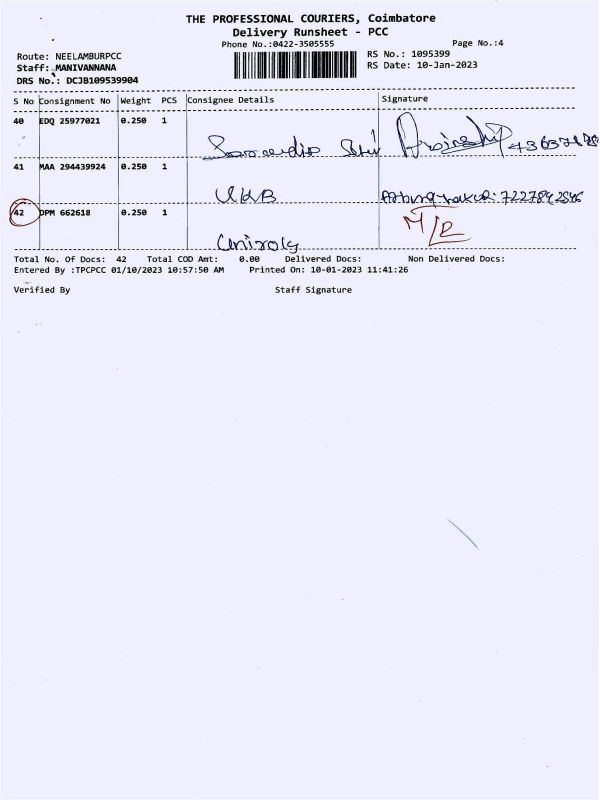 THE PROFESSIONAL COURIERS, Coimbatore
Delivery Runsheet - PCC
Phone No.:0422-3505555 Page No.:4
Route: NEELAMBURPCC RS No.: 1095399
Staff: MANIVANNANA RS Date: 10-Jan-2023
DRS No.: DCJB109539904
S No Consignment No Weight PCS Consignee Details Signature
40 EDQ 25977021 0.250 1
41 MAA 294439924 0.250 1
UKB
42 DPM 662618 0.250 1 M/R
Total No. Of Docs: 42 Total COD Amt: 0.00 Delivered Docs: Non Delivered Docs:
Entered By :TPCPCC 01/10/2023 10:57:50 AM Printed On: 10-01-2023 11:41:26
Verified By Staff Signature